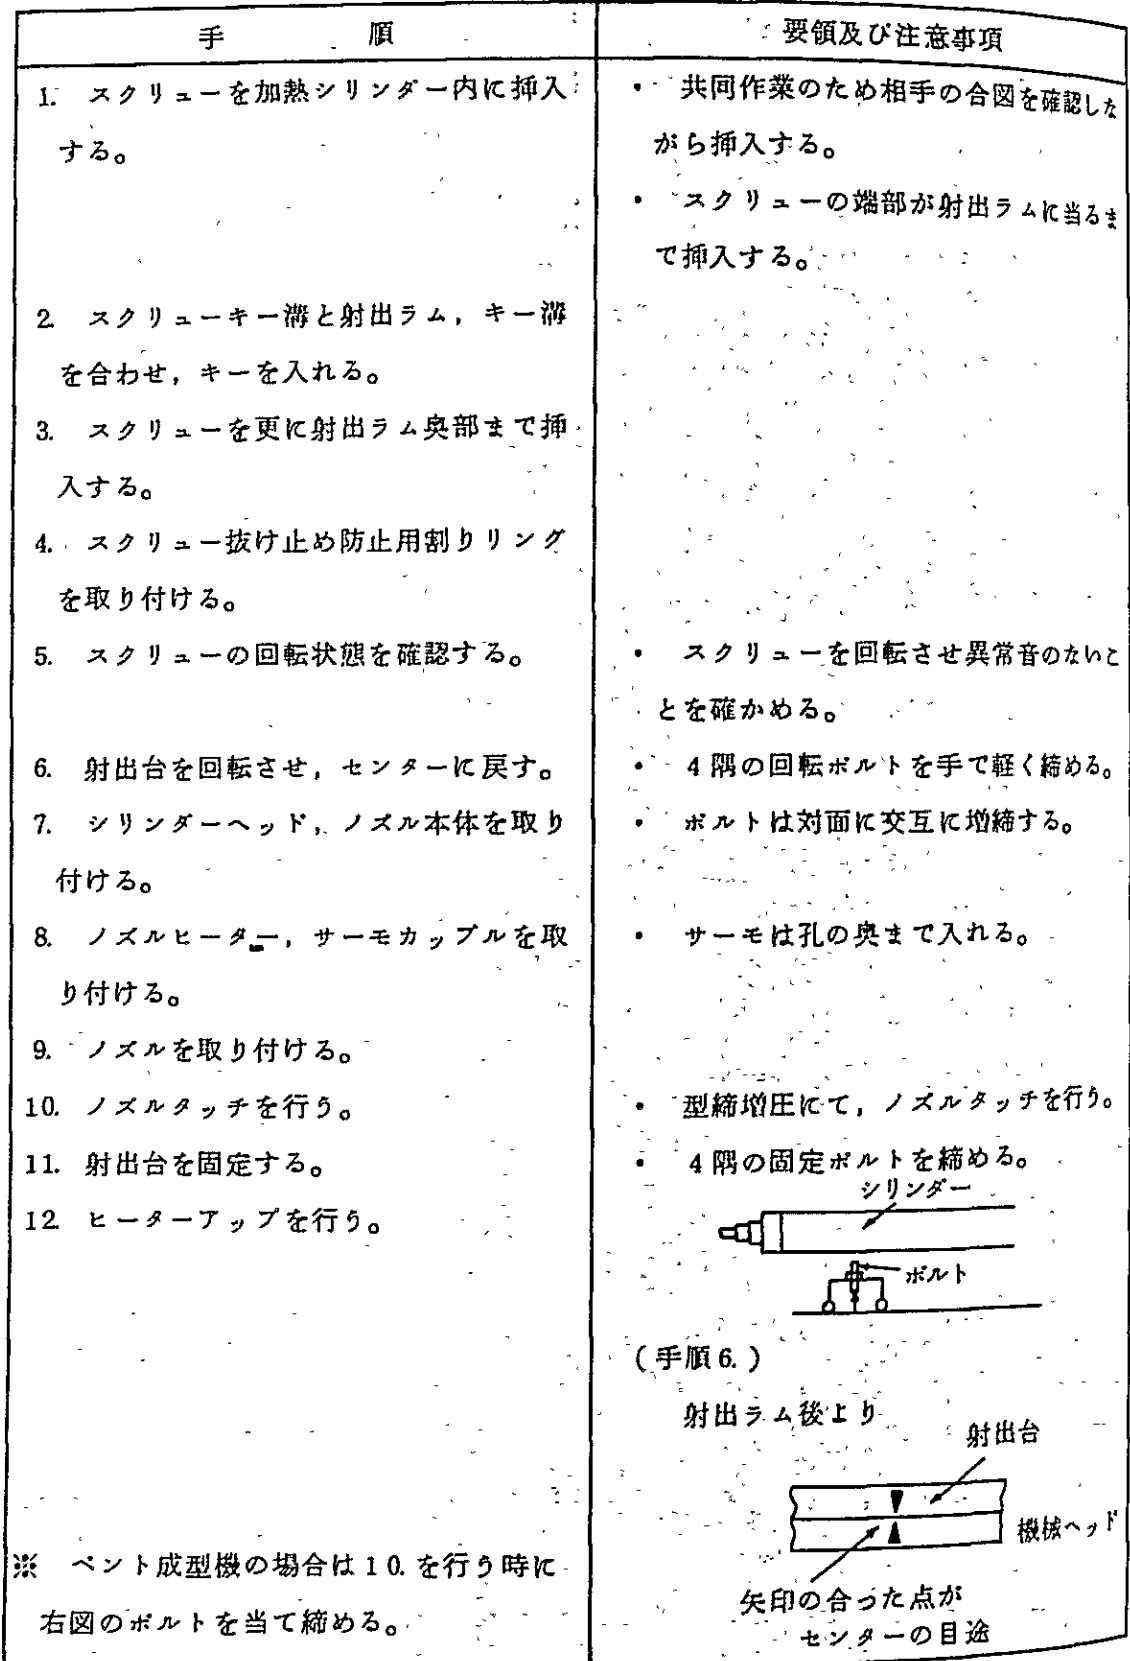 手　　　順
要領及び注意事項
1. スクリューを加熱シリンダー内に挿入
する。
・ 共同作業のため相手の合図を確認しな
がら挿入する。
・ スクリューの端部が射出ラムに当るま
で挿入する。
2. スクリューキー溝と射出ラム，キー溝
を合わせ，キーを入れる。
3. スクリューを更に射出ラム奥部まで挿
入する。
4. スクリュー抜け止め防止用割りリング
を取り付ける。
5. スクリューの回転状態を確認する。
・ スクリューを回転させ異常音のないこ
とを確かめる。
6. 射出台を回転させ，センターに戻す。
・ 4隅の回転ボルトを手で軽く締める。
7. シリンダーヘッド，ノズル本体を取り
付ける。
・ ボルトは対面に交互に増締する。
8. ノズルヒーター，サーモカップルを取
り付ける。
・ サーモは孔の奥まで入れる。
9. ノズルを取り付ける。
10. ノズルタッチを行う。
・ 型締増圧にて，ノズルタッチを行う。
11. 射出台を固定する。
・ 4隅の固定ボルトを締める。
12. ヒーターアップを行う。
シリンダー
ボルト
(手順6.)
射出ラム後より
射出台
機械ヘッド
矢印の合った点が
センターの目途
※ ベント成型機の場合は10.を行う時に
右図のボルトを当て締める。